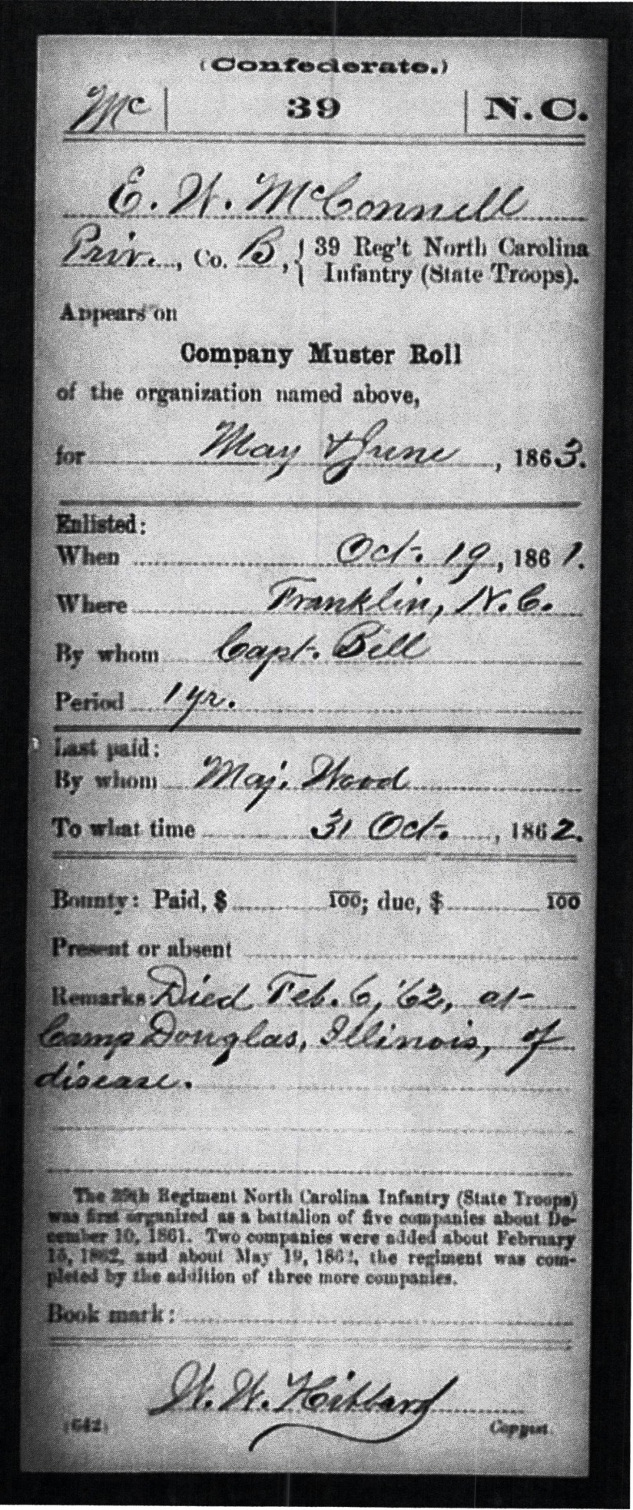 (Confederate.)
Mc | 39 | N.C.
E. W. McConnell
Priv., Co. B, { 39 Reg't North Carolina
Infantry (State Troops).
Appears on
Company Muster Roll
of the organization named above,
for May & June, 1863.
Enlisted:
When Oct. 19, 1861.
Where Franklin, N.C.
By whom Capt. Bell
Period 1 yr.
Last paid:
By whom Maj. Wood
To what time 31 Oct., 1862.
Bounty: Paid, $ 100; due, $ 100
Present or absent
Remarks Died Feb. 6, '62, at
Camp Douglas, Illinois, of
disease.
The 39th Regiment North Carolina Infantry (State Troops)
was first organized as a battalion of five companies about De-
cember 10, 1861. Two companies were added about February
15, 1862, and about May 19, 1862, the regiment was com-
pleted by the addition of three more companies.
Book mark:
W. W. Hibbard
(642) Copyist.